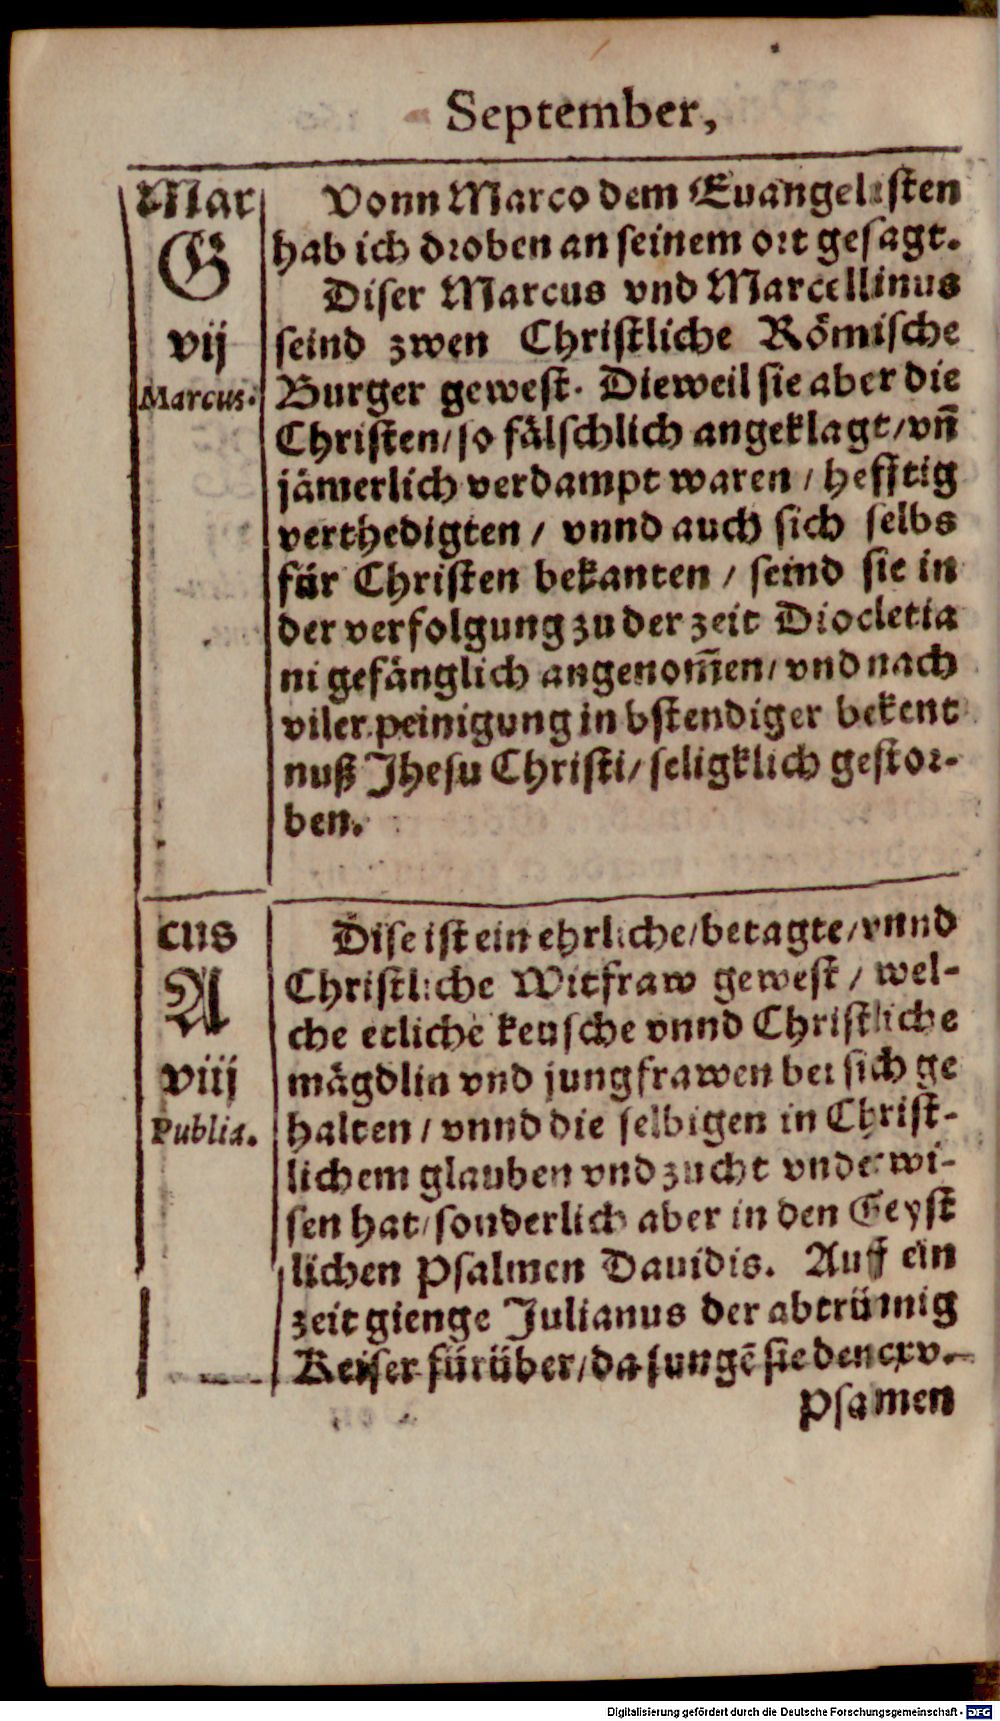 September,
Mar
G
vij
Marcus.
Vonn Marco dem Euangelisten
hab ich droben an seinem ort gesagt.
Diser Marcus vnd Marcellinus
seind zwen Christliche Römische
Burger gewest. Dieweil sie aber die
Christen/ so fälschlich angeklagt/ vñ
jämerlich verdampt waren / hefftig
verthedigten / vnnd auch sich selbs
für Christen bekanten / seind sie in
der verfolgung zu der zeit Diocletia
ni gefänglich angenom̃en/ vnd nach
viler peinigung in bstendiger bekent
nuß Jhesu Christi/ seligklich gestor-
ben.
cus
A
viij
Publia.
Dise ist ein ehrliche/ betagte/ vnnd
Christliche Witfraw gewest / wel-
che etliche keusche vnnd Christliche
mägdlin vnd jungfrawen bei sich ge
halten / vnnd die selbigen in Christ-
lichem glauben vnd zucht vnderwi-
sen hat/ sonderlich aber in den Geyst
lichen Psalmen Dauidis. Auff ein
zeit gienge Julianus der abtrümig
Keiser fürüber/ da sungẽ sie den cxv.
Psamen
Digitalisierung gefördert durch die Deutsche Forschungsgemeinschaft - DFG